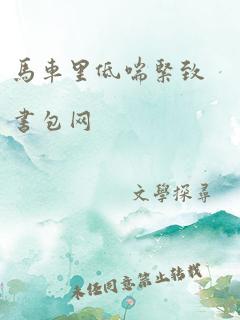 馬車里低喘緊致
書包网
文學探尋
未经同意禁止转载